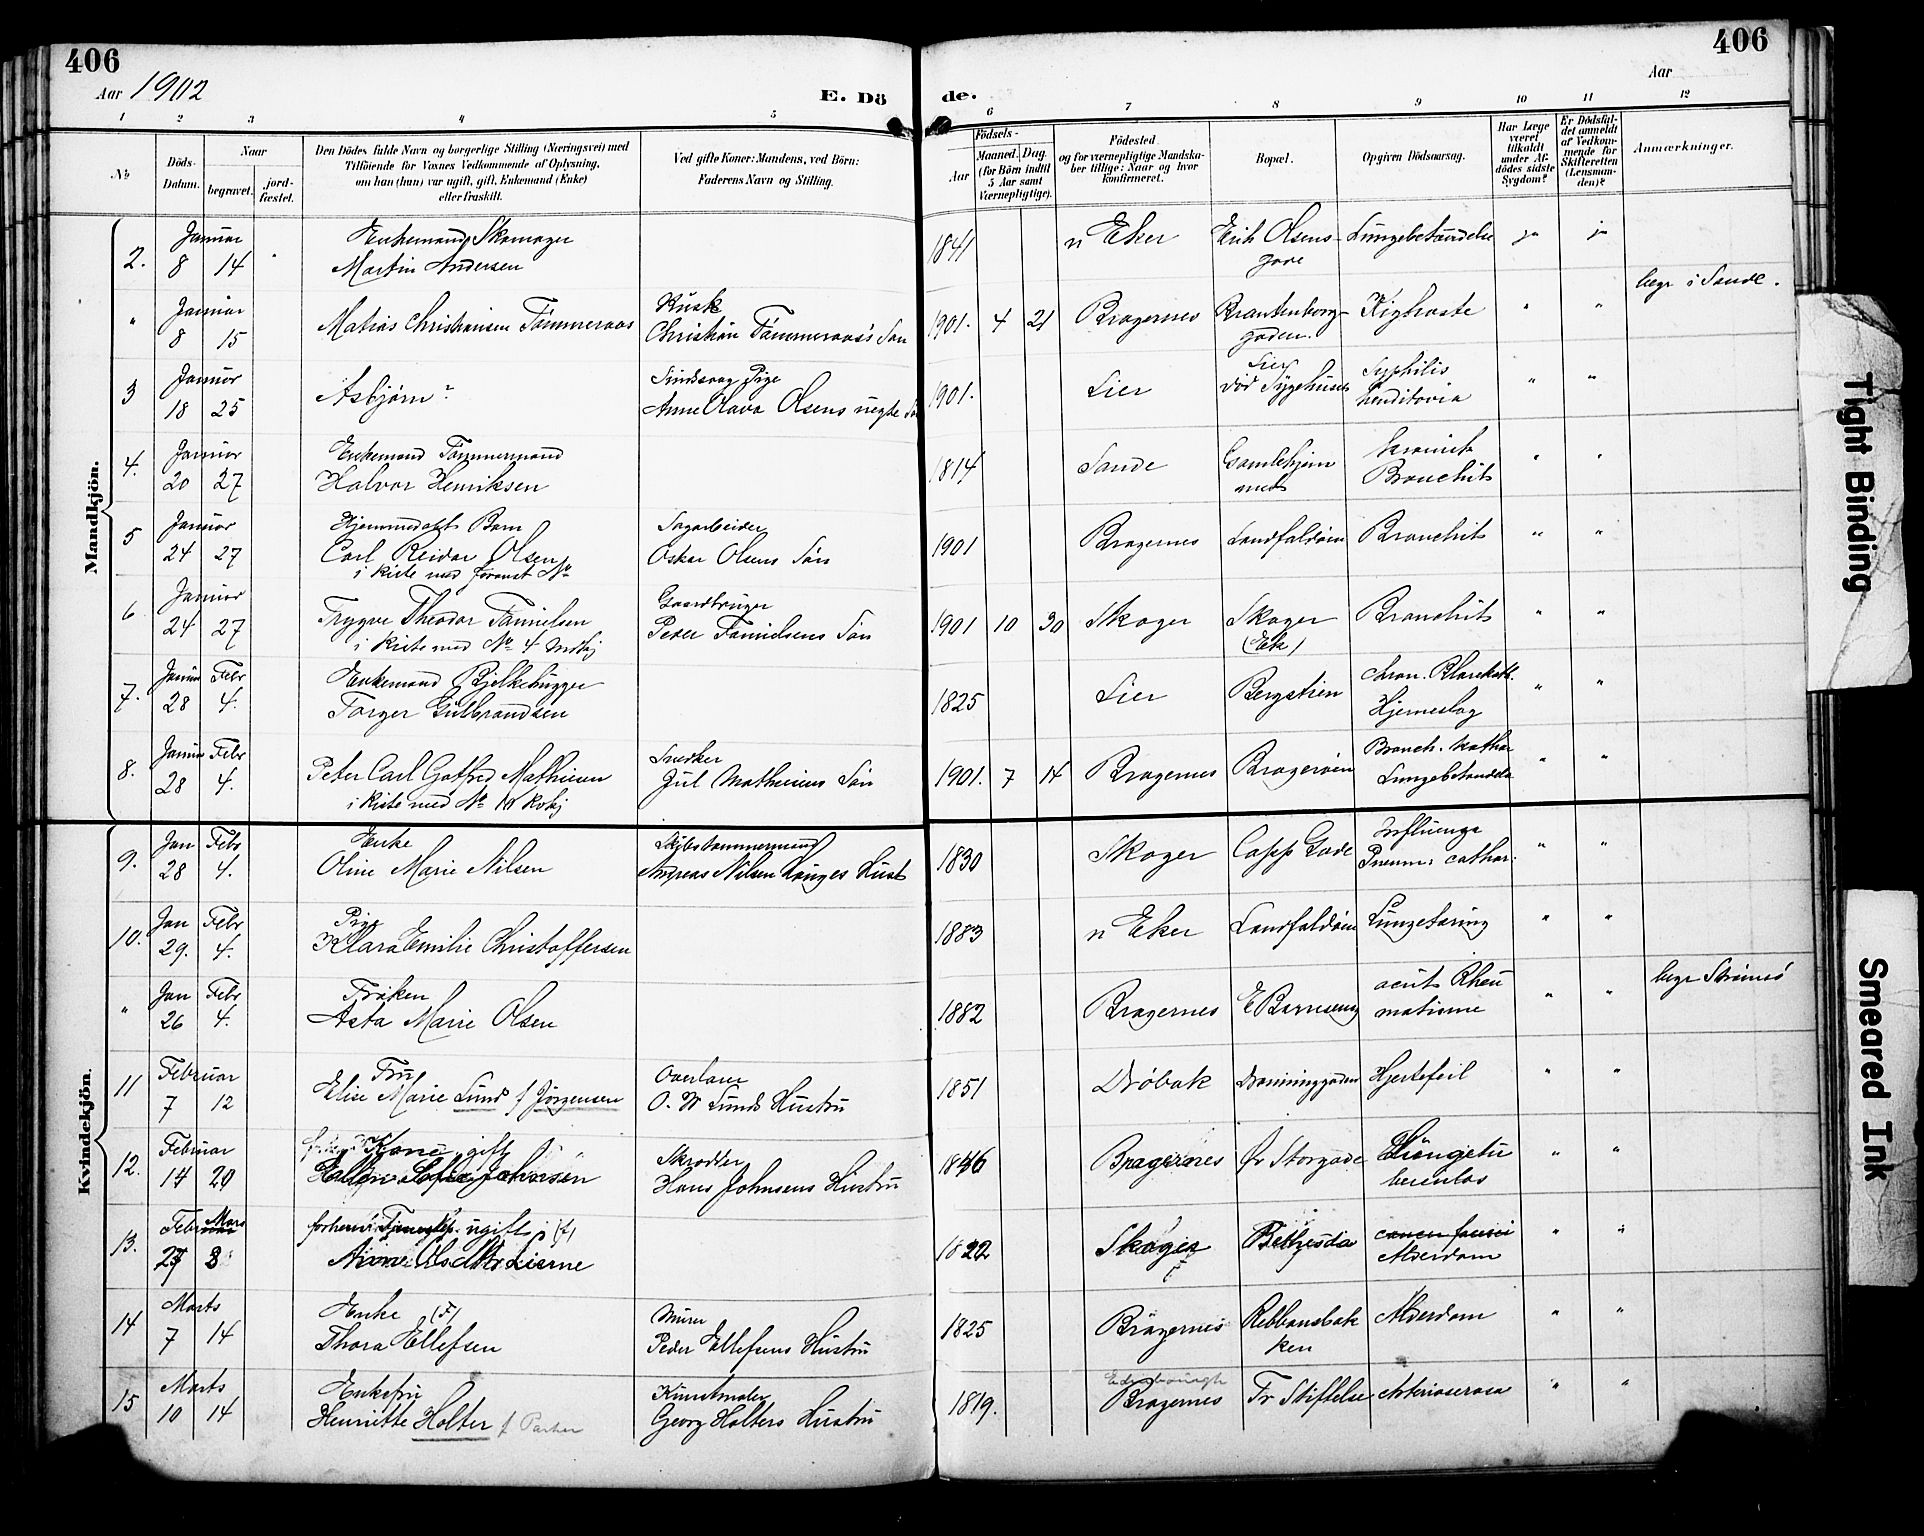 406
406
Aar 1902
E. Dö
de.
Aar
1 2 3 4 5 6 7 8 9 10 11 12
No
Döds-
Datum.
Naar
begravet.
jord-
fæstet.
Den Dödes fulde Navn og borgerlige Stilling (Næringsvei) med
Tilföiende for Voxnes Vedkommende af Oplysning,
om han (hun) var ugift, gift, Enkemand (Enke)
eller fraskilt.
Ved gifte Koner: Mandens, ved Börn:
Faderens Navn og Stilling.
Födsels-
Aar
Maaned. Dag.
(for Börn indtil
5 Aar samt
Værnepligtige).
Födested
og for værnepligtige Mandska-
ber tillige: Naar og hvor
konfirmeret.
Bopæl.
Opgiven Dödsaarsag.
Har Læge
været
tilkaldt
under Af-
dödes sidste
Sygdom?
Er Dödsfal-
det anmeldt
af Vedkom-
mende for
Skifteretten
(Lensman-
den)?
Anmærkninger.
Mandkjön.
2. Januar 8 14 Enkemand Skomager
Martin Andersen
1841 n Eker Erik Olsens-
gade
Lungebetændelse ja ja
begr i Sande.
" Januar 8 15 Matias Christiansen Tömmeraas
Kusk
Christian Tömmeraas's Sön
1901. 4 21 Bragernes Brantenborg-
gaden.
Kighoste " "
3 Januar 18 25 Asbjörn
Sindssyg Pige
Anne Olava Olsens uegte Sön
1901. Lier Lier
död Sygehuset
Syphilis
hereditaria " "
4. Januar 20 27 Enkemand Tömmermand
Halvor Henriksen
1814 Sande Gamlehjem
met
kronisk
Bronchit " "
5 Januar 24 27 Hjemmedöpt Barn
Carl Reidar Olsen
i kiste med foranst No
Sagarbeider
Oskar Olsens Sön
1901 Bragernes Landfaldöen Bronchit " "
6 Januar 24 27 Trygve Theodor Danielsen
i kiste med No 4 Mdkj
Gaardbruger
Peder Danielsens Sön
1901 10 30 Skoger Skoger
(Eik)
Bronchit " "
7. Januar Febr 28 4. Enkemand Bjelkehugger
Torger Gulbrandsen
1825 Lier Bergstien chron. Blærekatt.
Hjerneslag " "
8. Januar Febr 28 4. Peter Carl Gotfred Mathiesen
i kiste med No 10 Kvkj
Snedker
Jul Mathiesens Sön
1901. 7 14 Bragernes Brageröen Bronch. kathar
Lungebetændelse " "
Kvindekjön.
9. Jan Febr 28 4. Enke
Oline Marie Nilsen
Skibstömmermand
Andreas Nilsen Hauges Hust
1830 Skoger Capp Gade Influenza
Pneum: cathar: " "
10. Jan Febr 29. 4. Pige
Klara Emilie Christoffersen
1883 n Eker Landfaldöen Lungetæring " "
" Jan Febr 26 4. Fröken
Asta Marie Olsen
1882 Bragernes acut Rheu
matisme " "
begr Strömsö
11 Februar 7 12 Fru
Elise Marie Lund f Jörgensen
O. W Lunds Hustru
1851 Dröbak Dronninggaden Hjertefeil " "
12. Februar 14 20 Kone, gift
Johnsen
Skrædder
Hans Johnsens Hustru
1846 Bragernes Öv Storgade Lungetu
berculos " "
13. Februar Mars 27 8 ugift
1822 Skoger Bethesda
Alderdom " "
14 Marts 7 14 Enke (F)
Thora Ellefsen
Murer
Peder Ellefsens Hustru
1825 Bragernes Rebbansbak
ken
Alderdom " "
15 Marts 10 14 Enkefru
Henriette Holter f Parker
Kunstmaler
Georg Holters Hustru
1819. Edinbourgh
Bragernes Fr Stiftelse " "
Tight Binding
Smeared Ink